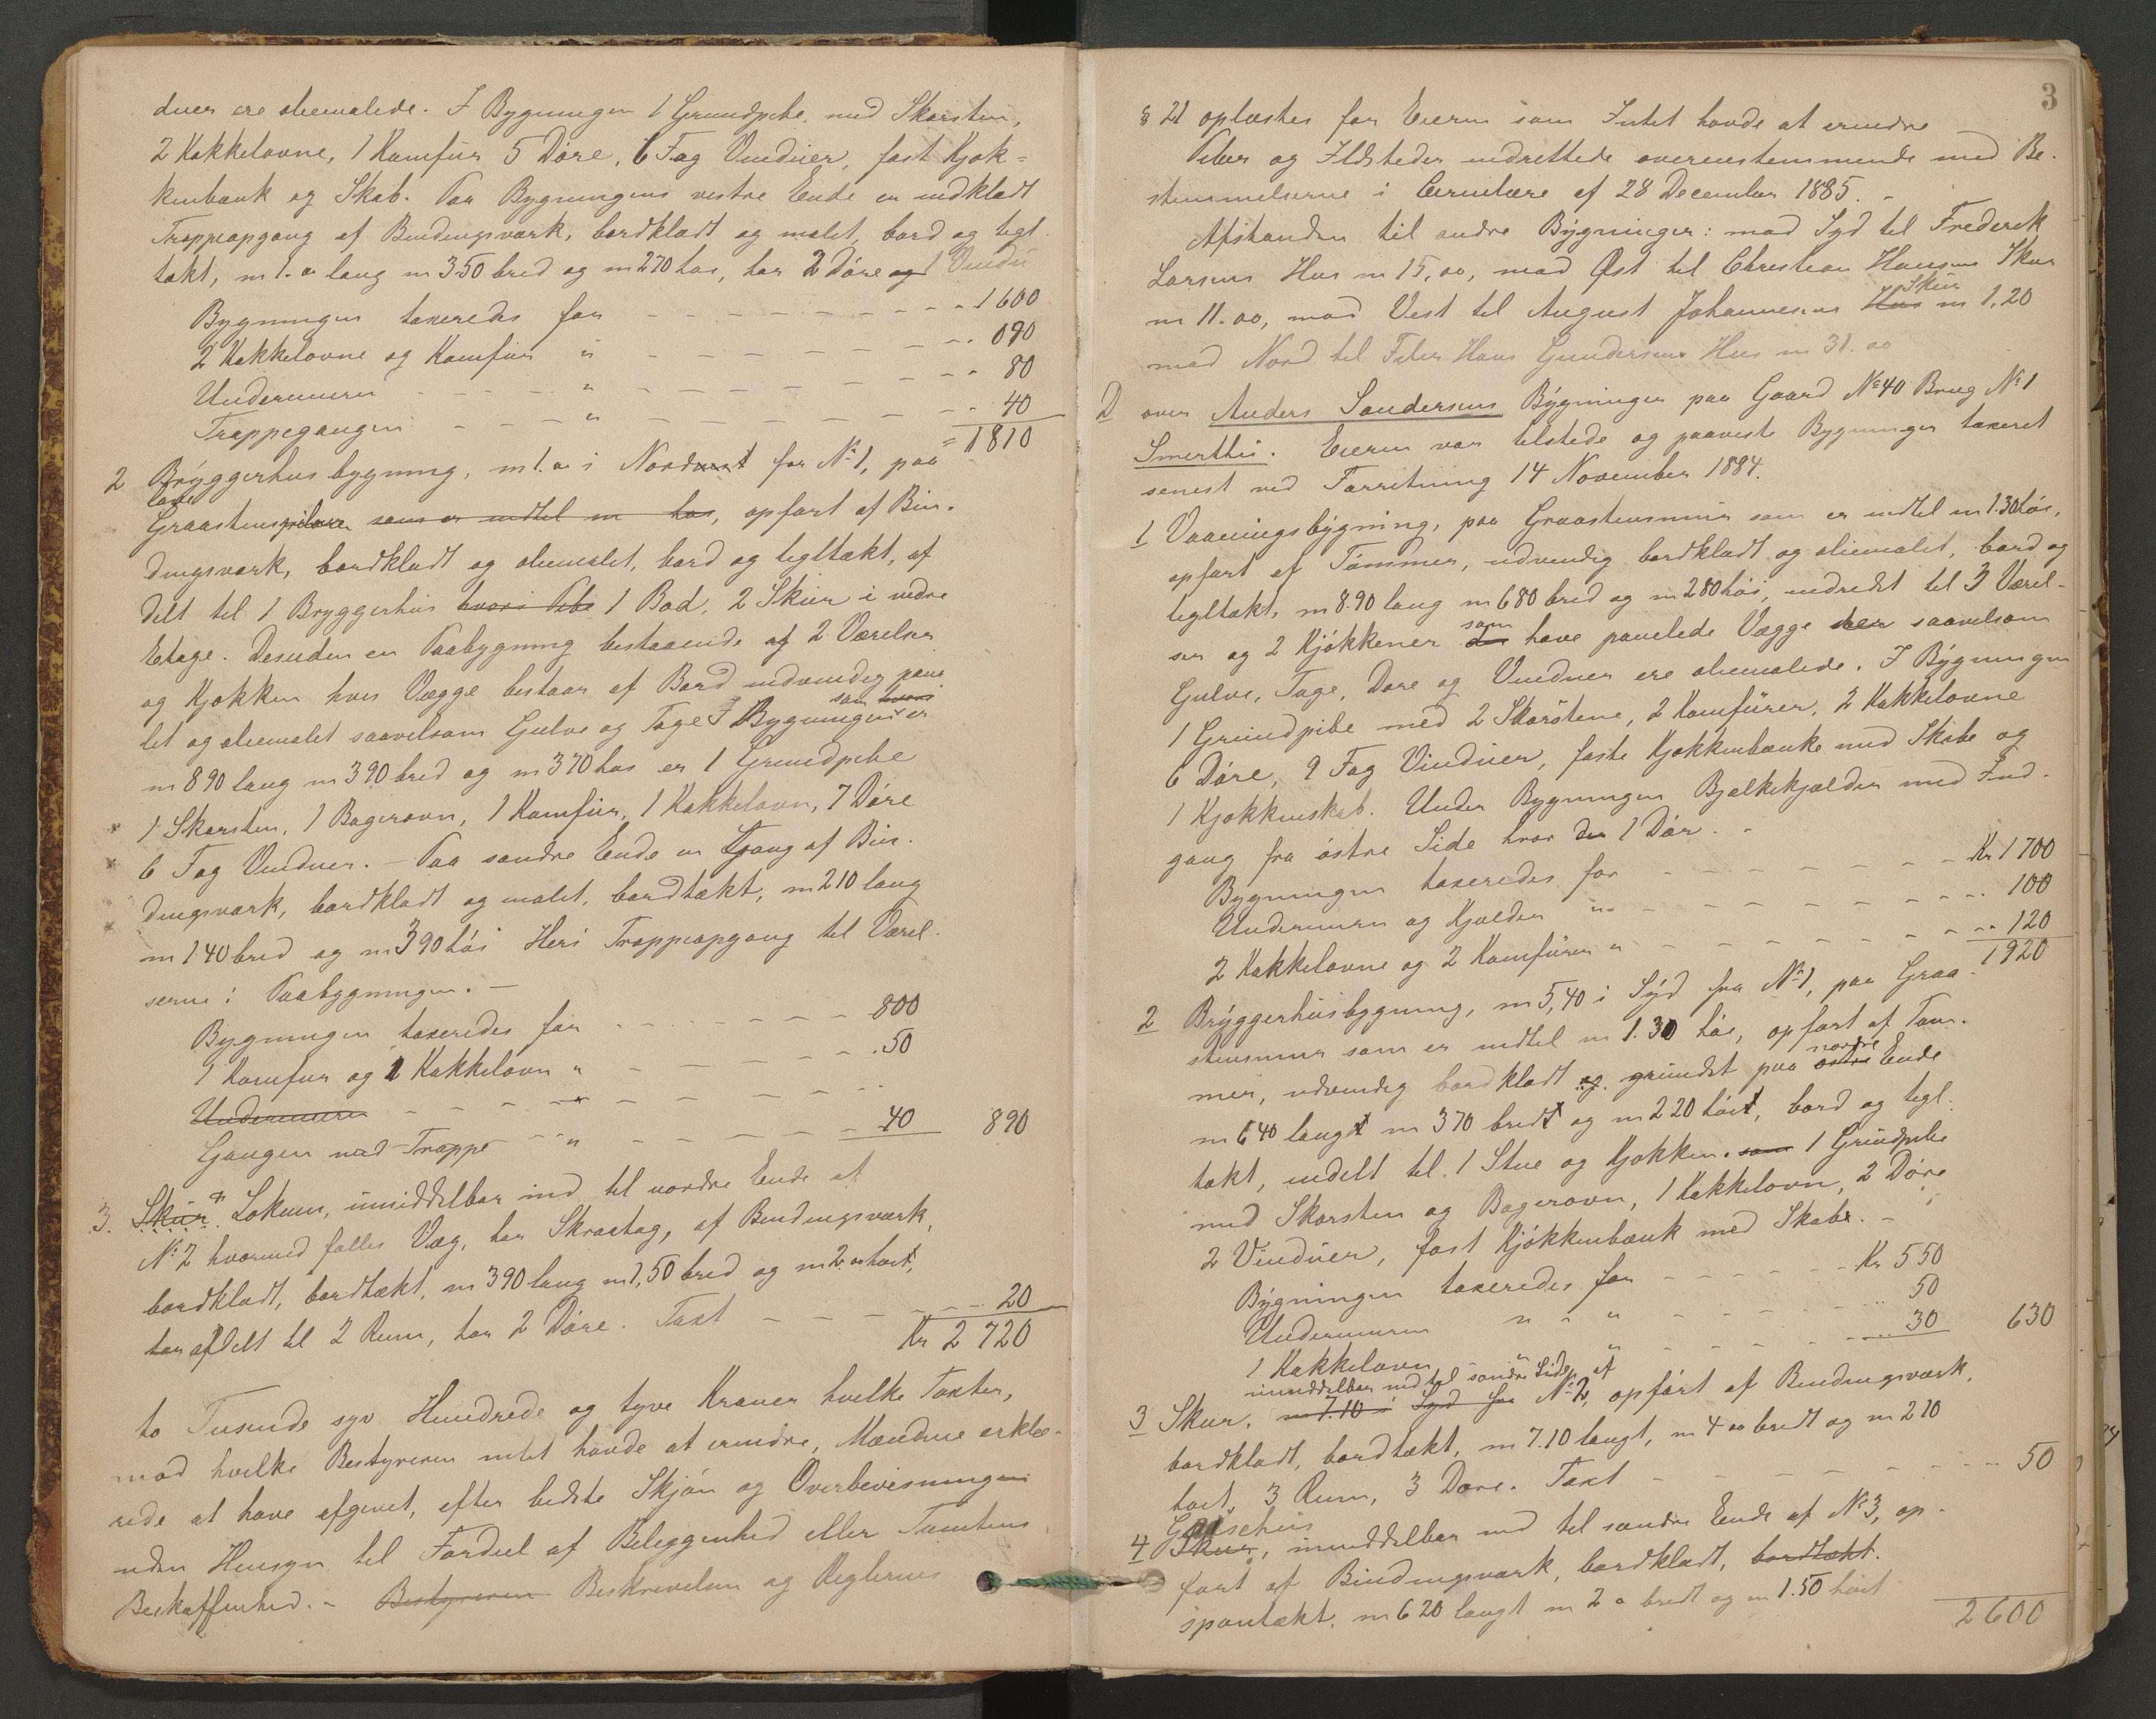 duer ere oliemalede. I Bygningen 1 Grundpibe med Skorsten,
2 Kakkelovne, 1 Komfur 5 Døre, 6 Fag Vinduer, fast Kjøk=
kenbænk og Skab. Paa Bygningens vestre Ende en indklædt
Trappeopgang af Bindingsværk, bordklædt og malet, bord og tegl
tækt, m 1.00 lang m 350 bred og m 270 høi, har 2 Døre og 1 Vindu
Bygningen taxeredes for - - - 1600
2 Kakkelovne og Komfur " - - - 090
Undermuren - - - " - - - 80
Trappegangen - - - " - - - 40
= 1810
2 Bryggerhusbygning, m 1.00 i Nordvest for No 1, paa
lave
Graastenspilare som er indtil m høi, opført af Bin-
dingsværk, bordklædt og oliemalet, bord og tegltækt, af
delt til 1 Bryggerhus hvori Pibe 1 Bod, 2 Skur i nedre
Etage. Desuden en Paabygning bestaaende af 2 Værelser
og Kjøkken hvis Vægge bestaar af Bord indvendig pane
let og oliemalet saavelsom Gulve og Tage I Bygningen som hvori er
m 890 lang m 390 bred og m 370 høi er 1 Grundpibe
1 Skorsten, 1 Bagerovn, 1 Komfur, 1 Kakkelovn, 7 Døre
6 Fag Vinduer. - Paa søndre Ende en Gang af Bin-
dingsværk, bordklædt og malet, bordtækt, m 210 lang
m 140 bred og m 390 høi Heri Trappeopgang til Værel-
serne i Paabygningen. -
Bygningen taxeredes for - - - 800
1 Komfur og 1 Kakkelovn " - - - 50
Undermuren - - - " - - -
Gangen med Trappe - - " - - - 40 890
3. Skur Lokum, umiddelbar ind til nordre Ende af
No 2 hvormed fælles Væg, har Skraatag, af Bindingsværk,
bordklædt, bordtækt, m 390 lang m 1,50 bred og m 2.00 høit,
har afdelt til 2 Rum, har 2 Døre. Taxt - - - 20
Kr 2 720
to Tusinde syv Hundrede og tyve Kroner hvilke Taxter,
mod hvilke Bestyreren intet havde at erindre, Mændene erklæ-
rede at have afgivet, efter bedste Skjøn og Overbevisningen
uden Hensyn til Fordeel af Beliggenhed eller Tomtens
Beskaffenhed. - Bestyreren Beskrivelsen og Reglernes
3
§ 21 oplæstes for Eieren som Intet havde at erindre
Piber og Ildsteder indrettede overensstemmende med Be-
stemmelserne i Circulære af 28 December 1885. -
Afstanden til andre Bygninger: mod Syd til Frederik
Larsens Hus m 15,00, mod Øst til Christian Hansens Skur
m 11.00, mod Vest til August Johannesens Hus Skur m 1,20
mod Nord til Peder Hans Gundersens Hus m 31.00
D over Anders Sandersens Bygninger paa Gaard No 40 Brug No 1
Smerthu. Eieren var tilstede og paaviste Bygninger taxeret
senest ved Forretning 14 November 1884.
1 Vaaningsbygning, paa Graastensmur som er indtil m 1.30 høi,
opført af Tømmer, udvendig bordklædt og oliemalet, bord og
tegltækt, m 8.90 lang m 680 bred og m 280 høi, indredet til 3 Værel-
ser og 2 Kjøkkener som have panelede Vægge der saavelsom
Gulve, Tage, Døre og Vinduer ere oliemalede. I Bygningen
1 Grundpibe med 2 Skorstene, 2 Komfurer, 2 Kakkelovne
6 Døre, 9 Fag Vinduer, faste Kjøkkenbænke med Skabe og
1 Kjøkkenskab. Under Bygningen Bjælkekjælder med Ind-
gang fra østre Side hvor der 1 Dør. -
Bygningen taxeredes for - - - Kr 1 700
Undermuren og Kjælder " - - - 100
2 Kakkelovne og 2 Komfurer " - - - 120
1920
2 Bryggerhusbygning, m 5,40 i Syd fra No 1, paa Graa-
stensmur som er indtil m 1.30 høi, opført af Tøm-
mer, udvendig bordklædt og grundet paa østre nordre Ende
m 640 langt m 370 bredt og m 220 høit, bord og tegl-
tækt, indelt til 1 Stue og Kjøkken. som 1 Grundpibe
med Skorsten og Bagerovn, 1 Kakkelovn, 2 Døre
2 Vinduer, fast Kjøkkenbænk med Skabe. -
Bygningen taxeredes for - - - Kr 550
Undermuren " " " - - - 50
1 Kakkelovn " - - - 30 630
umiddelbar ind til søndre Side af
3 Skur, m 7.10 i Syd fra No 2, opført af Bindingsværk,
bordklædt, bordtækt, m 7.10 langt, m 4 00 bredt og m 210
høit, 3 Rum, 3 Døre. Taxt - - - 50
Grisehus
4 Skur, umiddelbar ind til søndre Ende af No 3, op-
ført af Bindingsværk, bordklædt, bordtækt.
spontækt, m 620 langt m 2 00 bredt og m 1.50 høit
2600